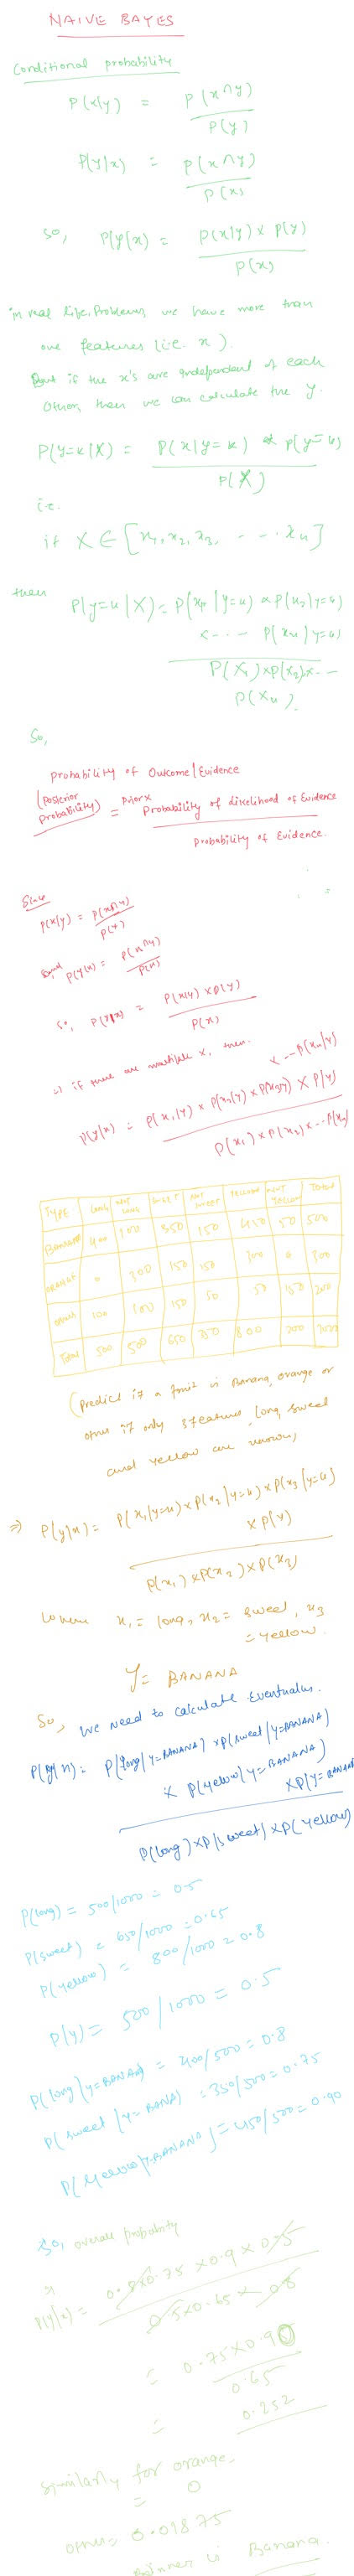 NAIVE BAYES
Conditional probability
P(x|y) = P(x∩y)
P(y)
P(y|x) = P(x∩y)
P(x)
so, P(y|x) = P(x|y) × P(y)
P(x)
in real life, Problems we have more than
one features (i.e. x).
But if the x's are independent of each
other, then we can calculate the y.
P(y=k|X) = P(X|y=k) * P(y=k)
P(X)
i.e.
if X ∈ [x1, x2, x3, - - - xn]
then
P(y=k|X) = P(x1|y=k) × P(x2|y=k)
×--- P(xn|y=k)
P(X1) × P(x2) × --
P(Xn).
So,
probability of Outcome | Evidence
(Posterior probability) = Prior × Probability of likelihood of Evidence
probability of Evidence.
Since
P(x|y) = P(x∩y)
P(y)
and P(y|x) = P(x∩y)
P(x)
so, P(y|x) = P(x|y) × P(y)
P(x)
=) if there are multiple x, then.
P(y|x) = P(x1|y) × P(x2|y) × P(x3|y) × --P(xn|y) × P(y)
P(x1) × P(x2) × --P(xn)
TYPE LONG NOT LONG SWEET NOT SWEET YELLOW NOT YELLOW TOTAL
BANANA 400 100 350 150 450 50 500
ORANGE 0 300 150 150 300 0 300
OTHER 100 100 150 50 50 150 200
Total 500 500 650 350 800 200 1000
(Predict if a fruit is Banana, orange or
other if only 3 feature, long, sweet
and yellow are known)
=) P(y|x) = P(x1|y=k) × P(x2|y=k) × P(x3|y=k)
× P(y)
P(x1) × P(x2) × P(x3)
where x1 = long, x2 = sweet, x3
= yellow.
Y = BANANA
So, we need to calculate eventually.
P(y|x) = P(long|Y=BANANA) × P(sweet|Y=BANANA)
× P(yellow|Y=BANANA)
× P(Y=BANANA)
P(long) × P(sweet) × P(yellow)
P(long) = 500/1000 = 0.5
P(sweet) = 650/1000 = 0.65
P(yellow) = 800/1000 = 0.8
P(y) = 500/1000 = 0.5
P(long|y=BANANA) = 400/500 = 0.8
P(sweet|y=BANA) = 350/500 = 0.75
P(yellow|y=BANANA) = 450/500 = 0.90
So, overall probability
=)
P(y|x) = 0.8×0.75 × 0.9 × 0.5
0.5×0.65 × 0.8
= 0.75×0.90
0.65
= 0.252
Similarly for orange-
= 0
other = 0.01875
winner is Banana.